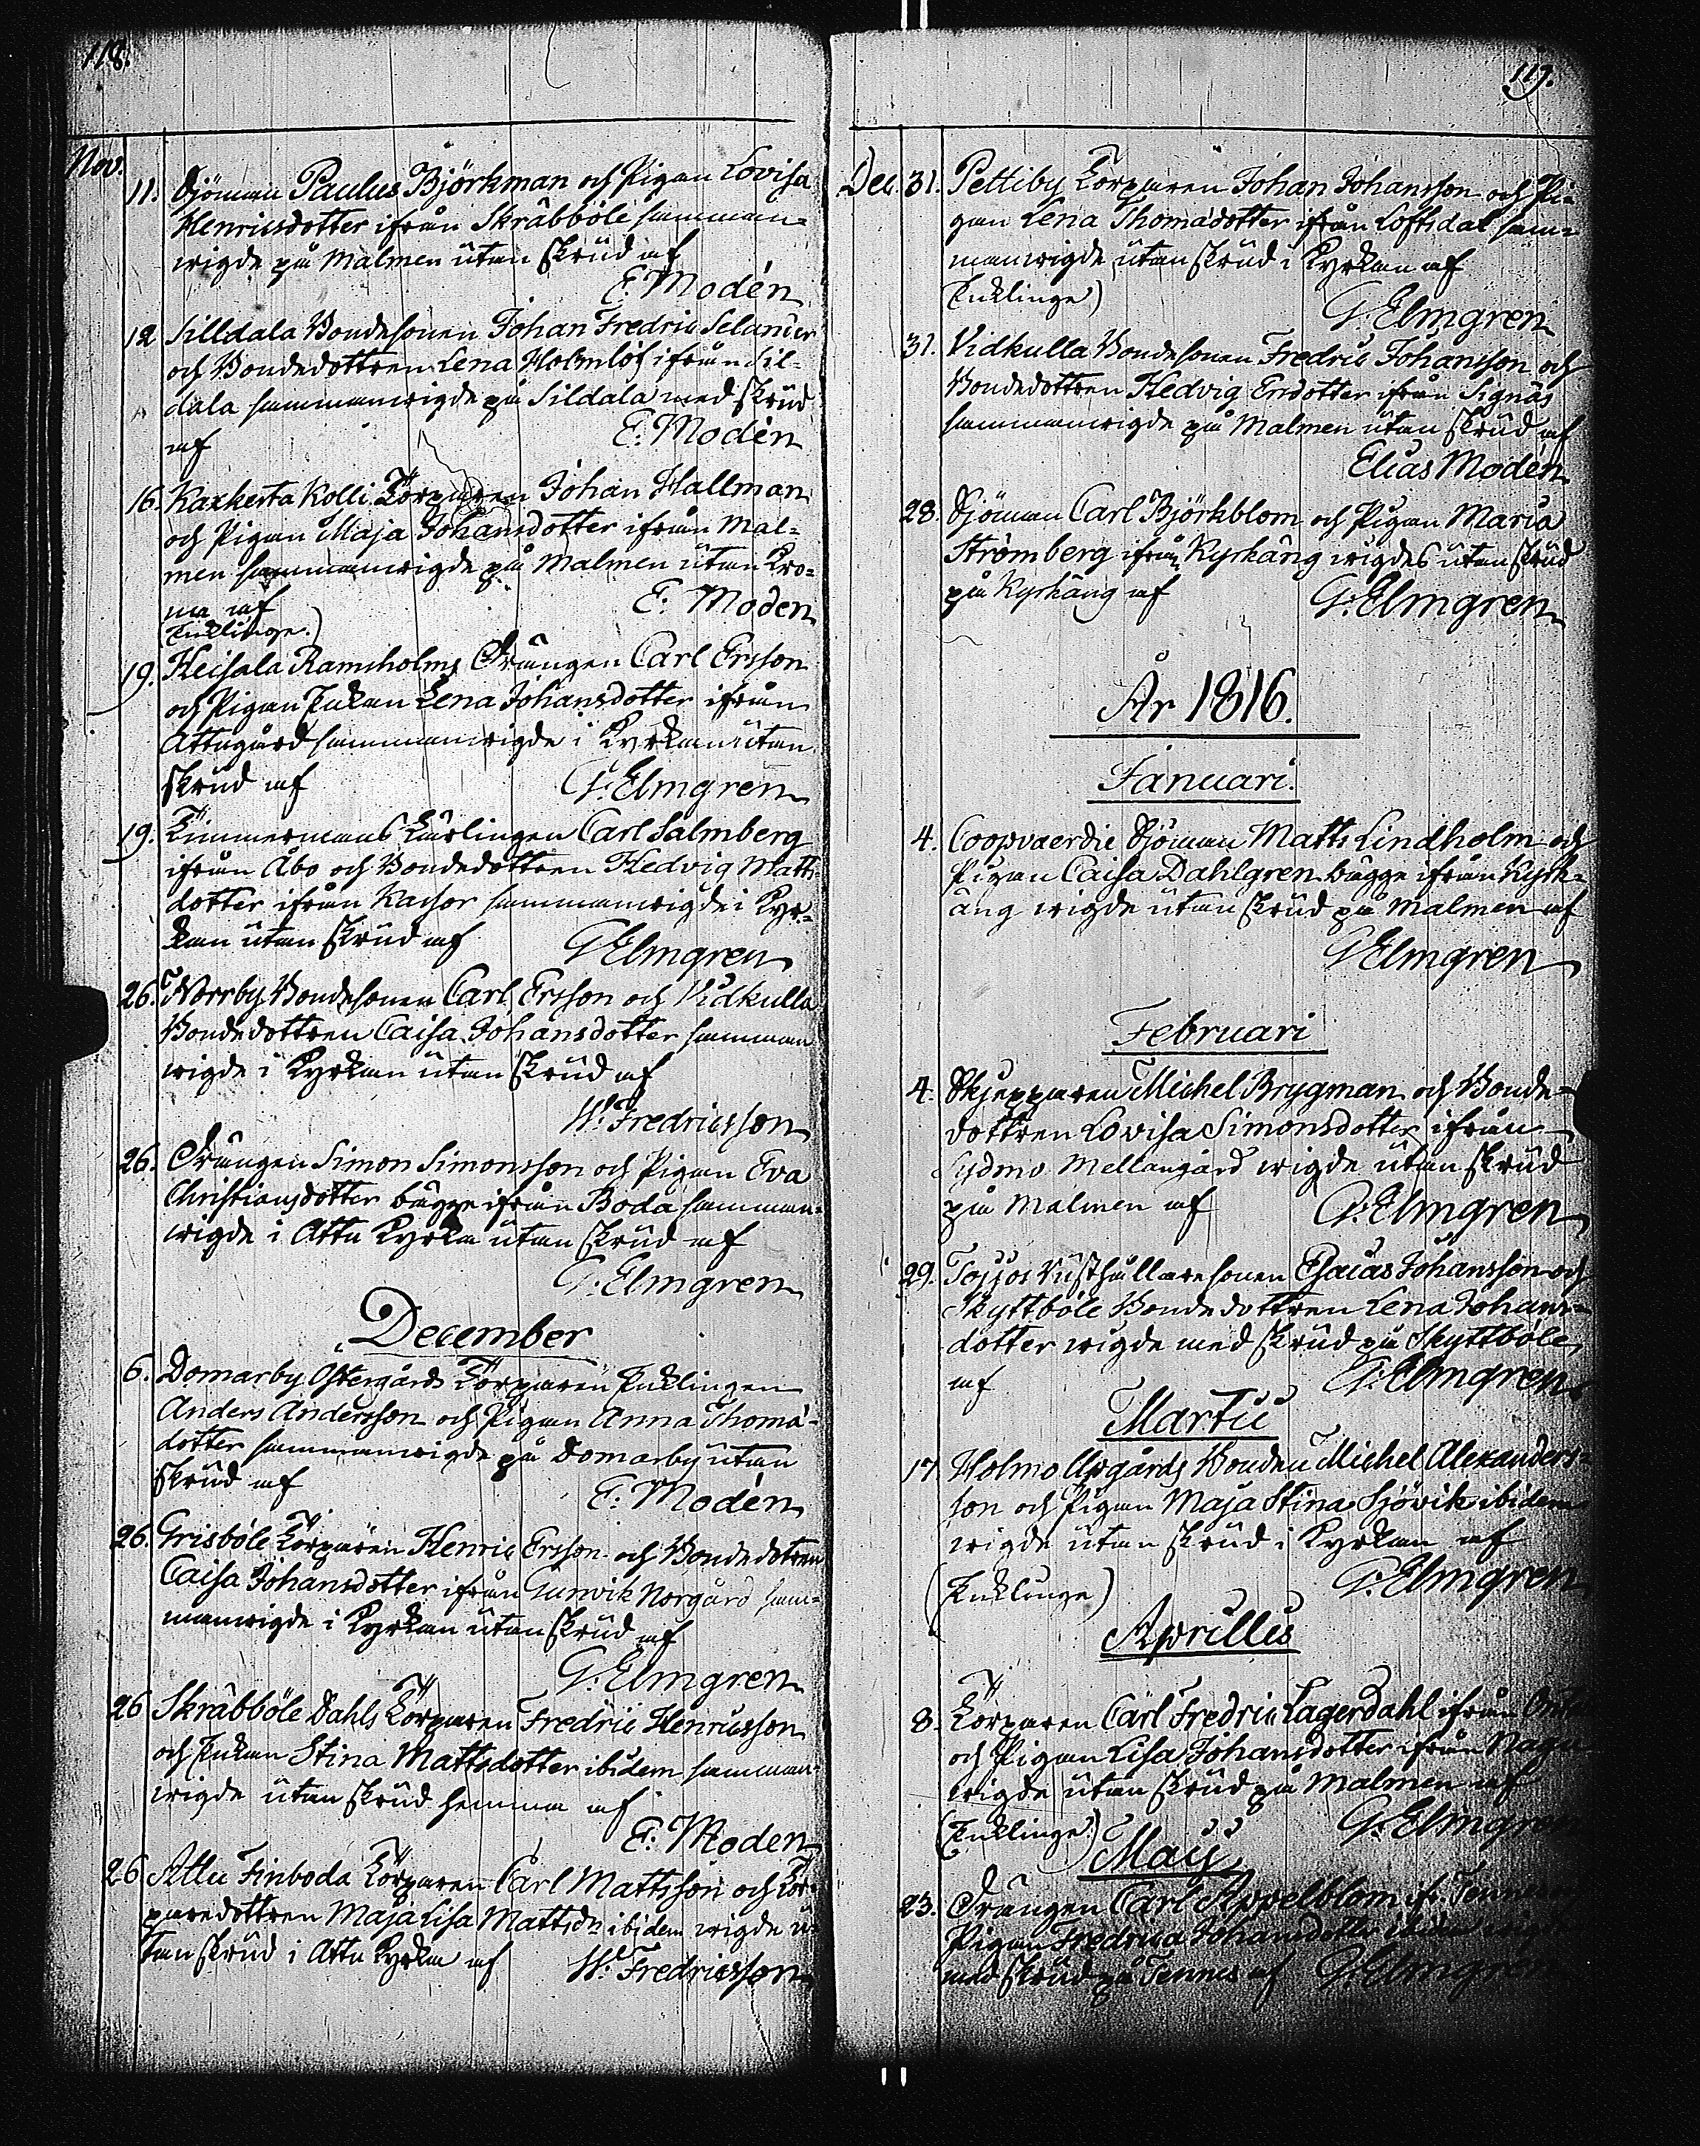 118.
Nov.
11. Sjöman Paulus Björkman och Pigan Lovisa
Henricsdotter ifrån Skräbböle samman-
wigde på Malmen utan skrud af
E. Modén
12 Silldala Bondesonen Johan Fredric Selander
och Bondedottren Lena Holmlöf ifrån Sil-
dala sammanwigde på Sildala med skrud
af E. Modén
16. Kaxkerta Kolli Torparen Johan Hallman
och Pigan Maja Johansdotter ifrån Mal-
men sammanwigde på Malmen utan Kro-
na af E. Moden
(Enklinge.)
19. Heisala Ramsholms Drängen Carl Ersson
och Pigan Enkan Lena Johansdotter ifrån
Attugård sammanwigde i Kyrkan utan
skrud af G. Elmgren
19. Timmermans Lärlingen Carl Salmberg
ifrån Åbo och Bondedottren Hedvig Matts-
dotter ifrån Kassor sammanwigde i Kyr-
kan utan skrud af G Elmgren
26. Norrby Bondesonen Carl Ersson och Vidkulla
Bondedottren Caisa Johansdotter samman
wigde i Kyrkan utan skrud af
W. Fredricsson
26. Drängen Simon Simonsson och Pigan Eva
Christiansdotter bägge ifrån Boda samman-
wigde i Attu Kyrka utan skrud af
G. Elmgren
December
6. Domarby Östergårds Torparen Enklingen
Anders Andersson och Pigan Anna Thoma-
dotter sammanwigde på Domarby utan
skrud af E. Modén
26. Grisböle Torparen Henric Ersson och Bondedotren
Caisa Johansdotter ifrån Gunvik Norgård sam-
manwigde i Kyrkan utan skrud af
G. Elmgren
26 Skräbböle Dahls Torparen Fredric Henricsson
och Enkan Stina Mattsdotter ibidem samman-
wigde utan skrud hemma af
E. Moden
26 Attu Finboda Torparen Carl Mattsson och Tor-
paredottren Maja Lisa Mattsdr ibidem wigde u-
tan skrud i Attu Kyrka af W. Fredricsson
119.
Dec. 31. Pettiby Torparen Johan Johansson och Pi-
gan Lena Thomadotter ifrån Loftsdal sam-
manwigde utan skrud i Kyrkan af
(Enklinge) G. Elmgren
31. Vidkulla Bondesonen Fredric Johansson och
Bondedottren Hedvig Ersdotter ifrån Signäs
sammanwigde på Malmen utan skrud af
Elias Modén
28. Sjöman Carl Björkblom och Pigan Maria
Strömberg ifrån Kyrkäng wigdes utan skrud
på Kyrkäng af G. Elmgren
År 1816.
Januari.
4. Coopvaerdie Sjöman Matts Lindholm och
Pigan Caisa Dahlgren bägge ifrån Kyrk-
äng wigde utan skrud på Malmen af
G Elmgren
Februari
4. Skjepparen Michel Brygman och Bonde-
dottren Lovisa Simonsdotter ifrån
Sydmo Mellangård wigde utan skrud
på Malmen af G. Elmgren
29. Rusthållaresonen Esaias Johansson och
Skyttböle Bondedottren Lena Johans-
dotter wigde med skrud på Skyttböle
af G. Elmgren
Martii
17 Holmo Uppgårds Bonden Michel Alexanders-
son och Pigan Maja Stina Sjövik ibidem
wigde utan skrud i Kyrkan af
(Enklinge) G. Elmgren
Aprillis
8. Torparen Carl Fredric Lagerdahl ifrån
och Pigan Lisa Johansdotter ifrån
wigde utan skrud på Malmen af
(Enklinge.) G. Elmgren
Maij
23. Drängen Carl Appelblom ifr.
Pigan Fredrica Johansdotter
med skrud på Tennes af G. Elmgren